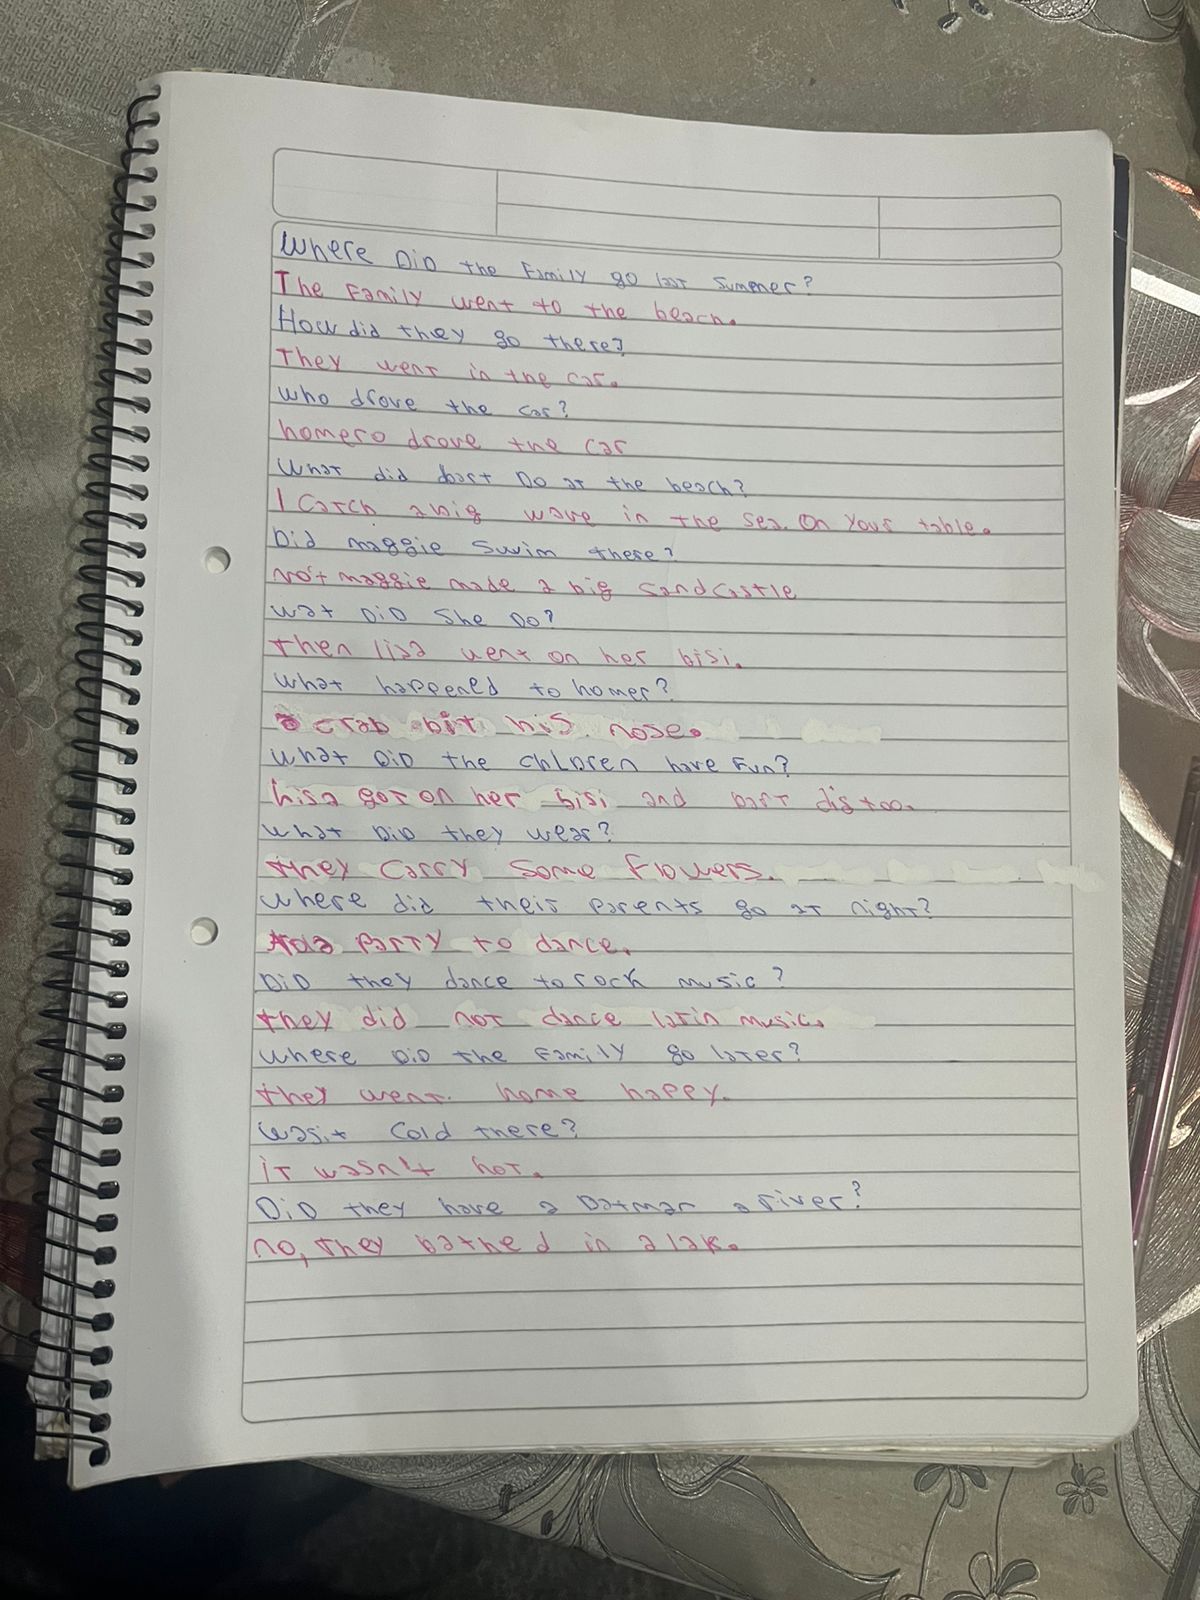 Where DiD the Family go last Summer?
The Family went to the beach.
How did they go there?
They went in the car.
who drove the car?
homero drove the car
What did bart Do at the beach?
I Catch a big wave in the sea. On Your table.
Did maggie Swim there?
no't maggie made a big Sandcastle
wat DiD She Do?
then lisa went on her bisi.
what happened to homer?
a crab bit his nose.
what DiD the chLDren have Fun?
lisa got on her bisi and bart dis too.
what DiD they wear?
they Carry Some Flowers.
where did their parents go at night?
to a Party to dance.
DiD they dance to rock music?
they did not dance latin music.
where DiD the Family go later?
they went. home happy.
was it Cold there?
it wasn't hot.
DiD they have a a river?
no, they bathed in a lak.